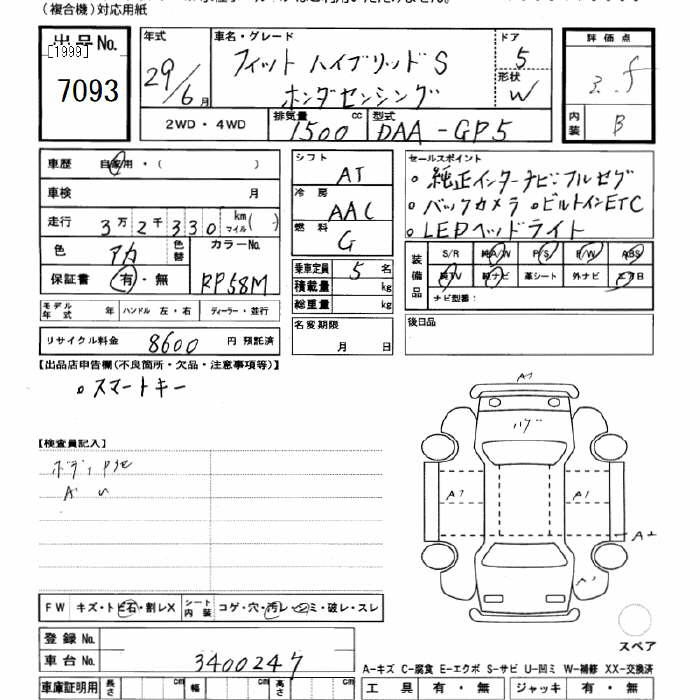 (複合機)対応用紙
出品No.
[1999]
7093
年式
29/6月
車名・グレード
フィット ハイブリッドS
ホンダセンシング
ドア
5
形状
W
評価点
3.5
内装
B
2WD・4WD
排気量
1500 cc
型式
DAA-GP5
車歴 自家用・( )
車検 月
走行 3万2千330 km マイル( )
色 アカ 色替 カラーNo.
保証書 有・無 RP58M
モデル年式 年 ハンドル 左・右 ディーラー・並行
リサイクル料金 8600 円 預託済
シフト
AT
冷房
AAC
燃料
G
乗車定員 5 名
積載量 kg
総重量 kg
名変期限
月 日
セールスポイント
。純正インターナビ・フルセグ
。バックカメラ 。ビルトインETC
。LEDヘッドライト
装備品
S/R 純A/W P/S P/W ABS
純TV 純ナビ 革シート 外ナビ エアB
ナビ型番:
後日品
【出品店申告欄(不良箇所・欠品・注意事項等)】
。スマートキー
【検査員記入】
A1
A1
A1
A2
スペア
FW キズ・トビ石・割レX シート内装 コゲ・穴・汚レ・シミ・破レ・スレ
登録No.
車台No. 3400247
A-キズ C-腐食 E-エクボ S-サビ U-凹ミ W-補修 XX-交換済
車庫証明用 長さ cm 幅 cm 高さ cm
工具 有・無 ジャッキ 有・無